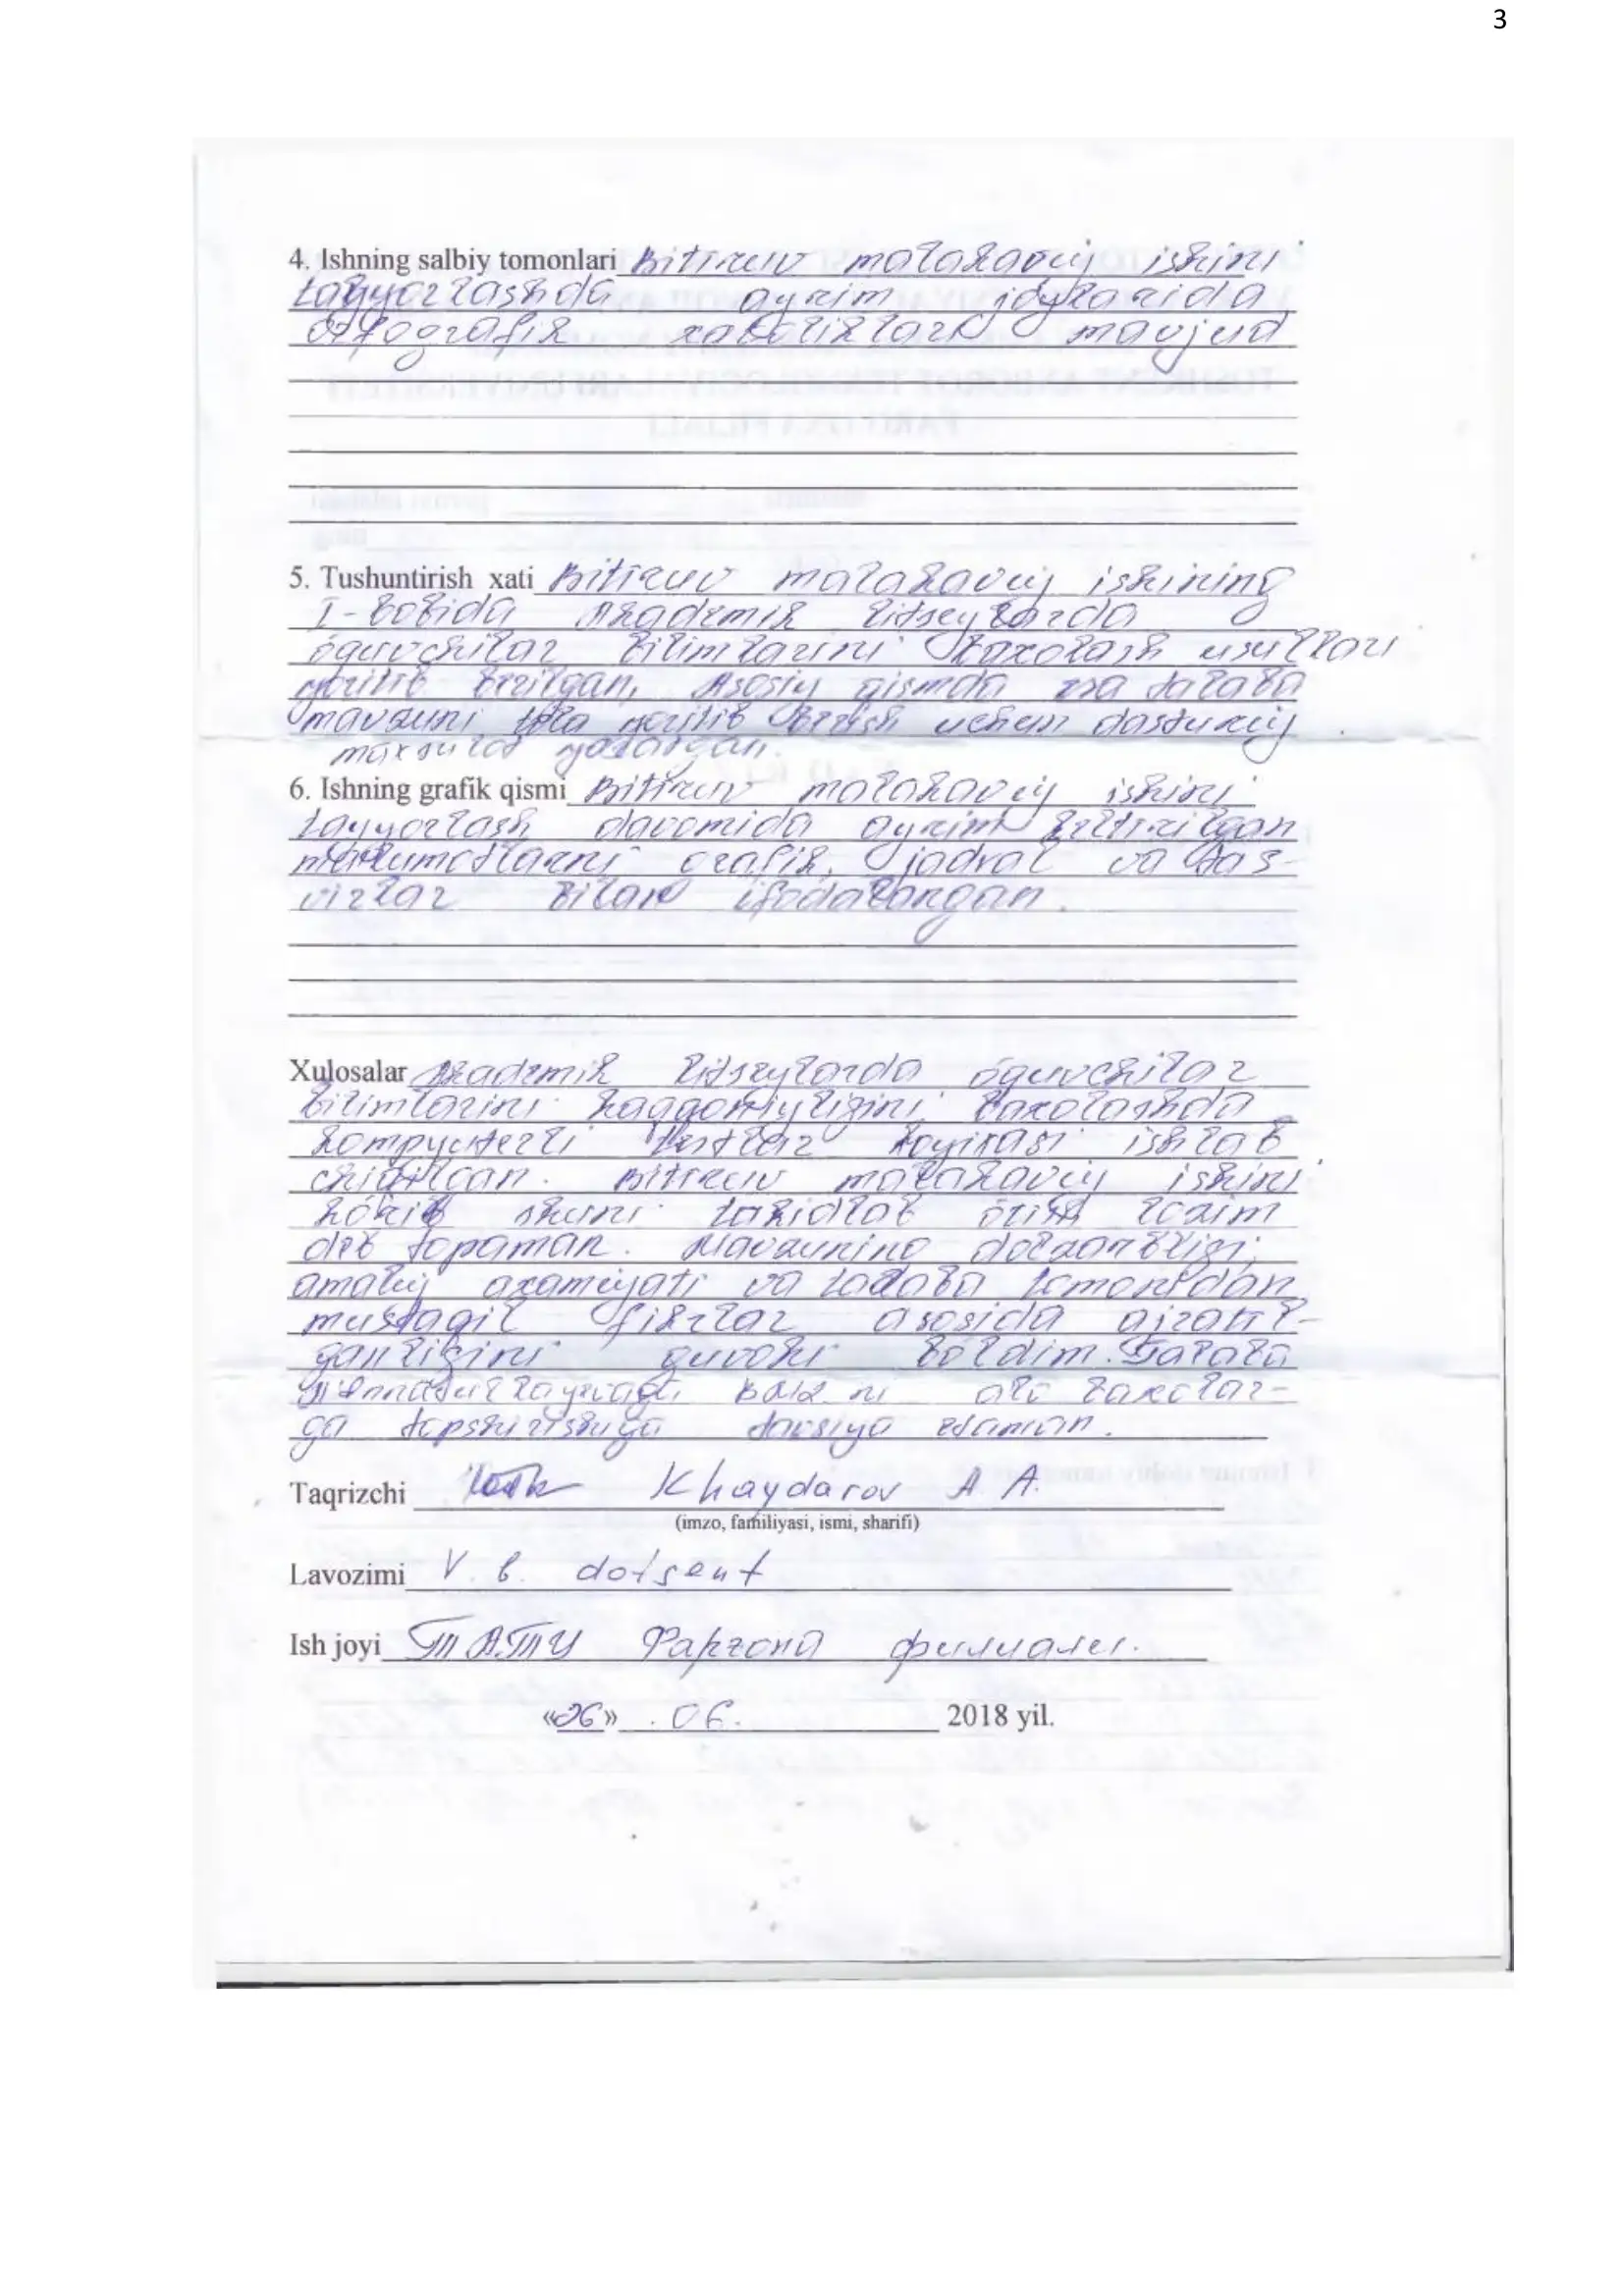 3
4. Ishning salbiy tomonlari Bitiruv malakaviy ishini
tayyorlashda ayrim joylarida
orfografik xatoliklari mavjud
5. Tushuntirish xati Bitiruv malakaviy ishining
I-bobida Akademik litseylarda
óquvchilar bilimlarini baxolash usullari
yoritib berilgan. Asosiy qismda esa talaba
mavzuni yoritib berish uchun dasturiy
maxsulot yaratgan.
6. Ishning grafik qismi Bitiruv malakaviy ishini
tayyorlash davomida ayrim keltirilgan
ma'lumotlarni grafik, jadval va tas-
virlar bilan ifodalangan.
Xulosalar Akademik litseylarda óquvchilar
bilimlarini haqqoniyligini baxolashda
kompyuterli testlar loyixasi ishlab
chiqilgan. Bitiruv malakaviy ishini
kórib shuni takidlab ótish lozim
deb topaman. Mavzuning dolzarbligi,
amaliy axamiyati va talaba tomonidan
mustaqil fikrlar asosida ajratil-
ganligini guvohi bóldim. Talaba
BMI ni alo baxolar-
ga topshirishiga tavsiya etaman.
Taqrizchi Khaydarov A A.
(imzo, familiyasi, ismi, sharifi)
Lavozimi V. b. dotsent
Ish joyi ТАТУ Фарғона филиали.
«26» . 06. 2018 yil.